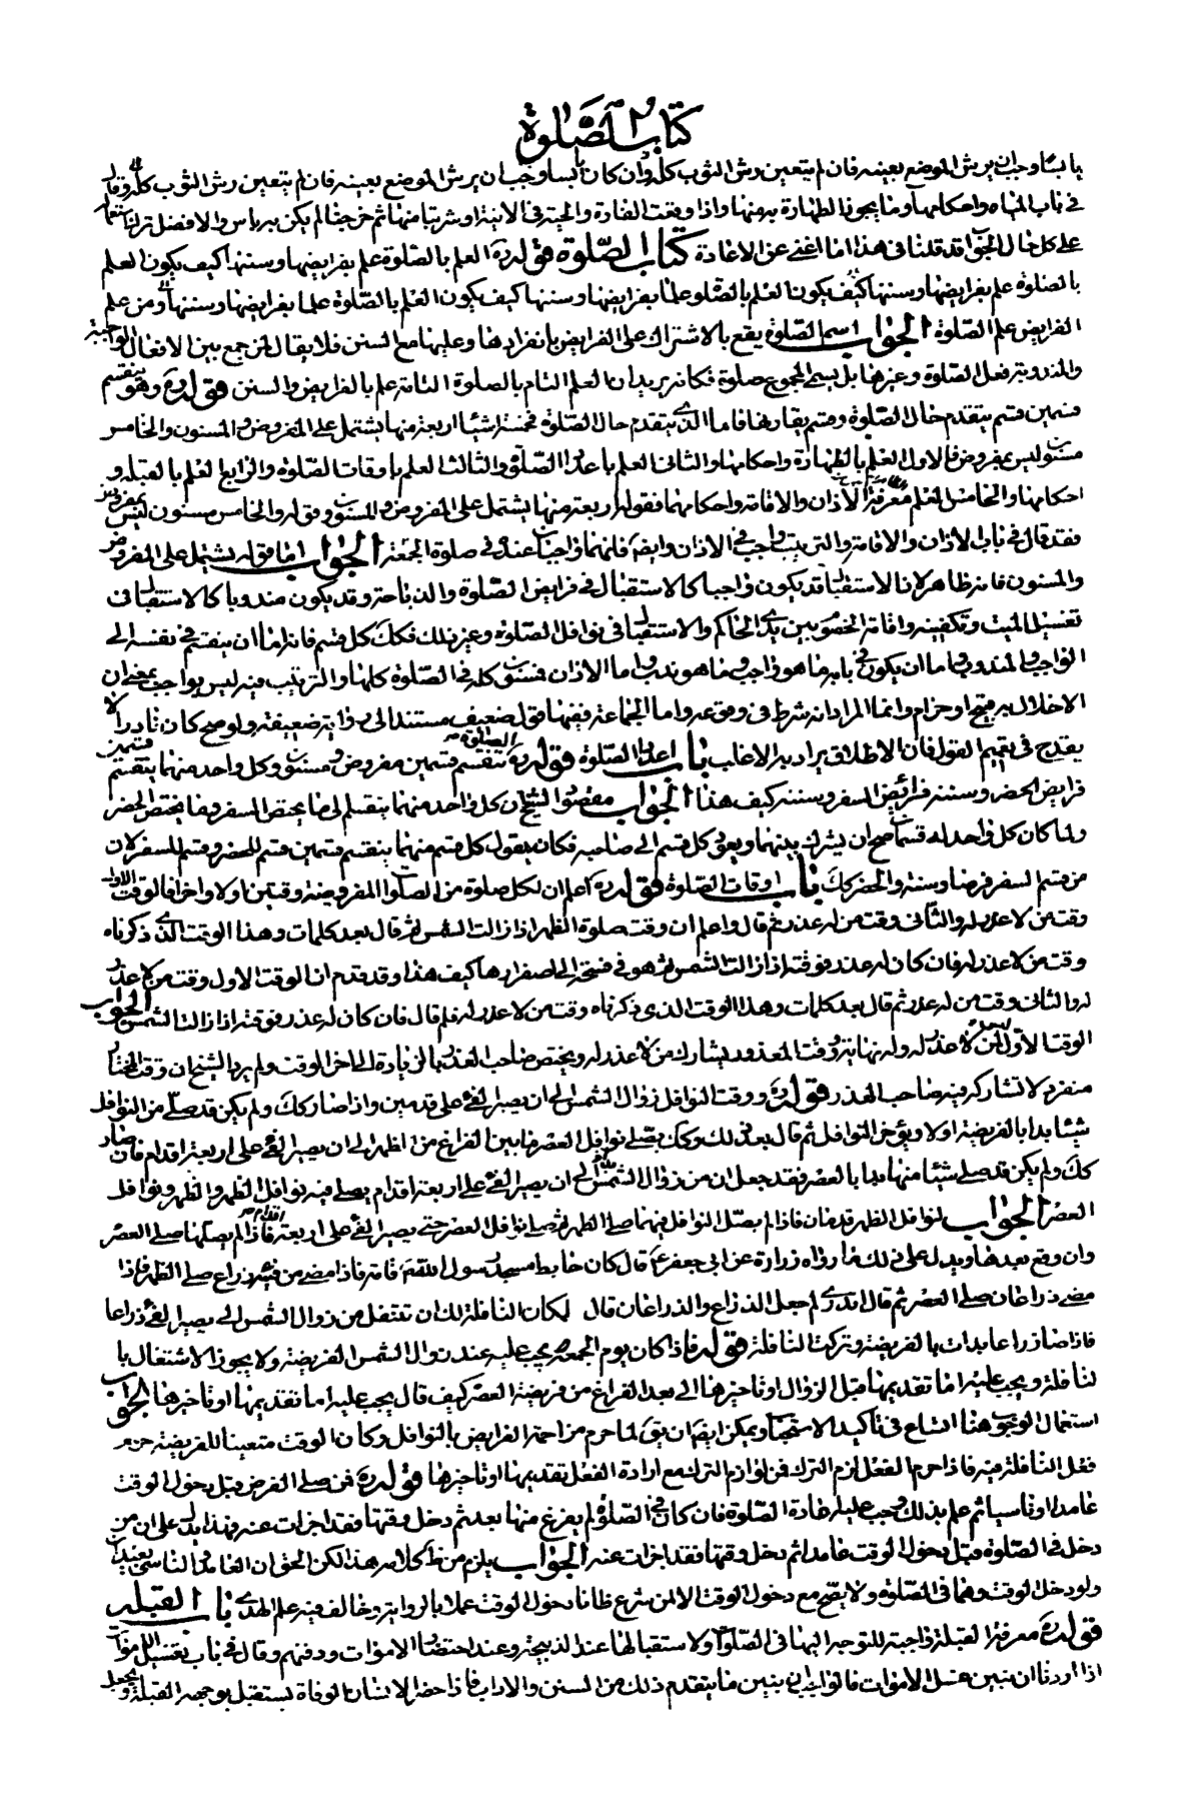 كتاب الصلوة
يابسا وجب ان يرش الموضع بعينه فان لم يتعين رش الثوب كله وان كان يابسا وجب ان يرش الموضع بعينه فان لم يتعين رش الثوب كله وقال
في باب المياه واحكامها وما يجوز الطهارة به منها واذا وقعت الفارة والحية في الانية او شربتا منها ثم خرجتا لم يكن به باس والافضل ترك استعماله
على كل حال الجواب قد قلنا في هذا ما اغنى عن الاعادة كتاب الصلوة قوله ره العلم بالصلوة علم بفرايضها وسننها كيف يكون العلم
بالصلوة علم بفرايضها وسننها كيف يكون العلم بالصلوة علما بفرايضها وسننها كيف يكون العلم بالصلوة علما بفرايضها وسننها ومن علم
الفرايض علم الصلوة الجواب اسم الصلوة يقع بالاشتراك على الفرايض بانفرادها وعليها مع السنن فلا يقال لمن جمع بين الافعال الواجبة
والمندوبة فعل الصلوة وغيرها بل يسمى المجموع صلوة فكانه يريد ان العلم التام بالصلوة التامة علم بالفرايض والسنن قوله ره وهو ينقسم
قسمين قسم يتقدم حال الصلوة وقسم يقارنها فاما الذي يتقدم حال الصلوة فخمسة اشياء اربعة منها يشتمل على المفروض والمسنون والخامس
مسنون ليس بمفروض فالاول العلم بالطهارة واحكامها والثاني العلم باعداد الصلوة والثالث العلم باوقات الصلوة والرابع العلم بالقبلة و
احكامها والخامس العلم معرفة الاذان والاقامة واحكامهما فقوله اربعة منها يشتمل على المفروض والمسنون وقوله والخامس مسنون ليس بمفروض
فقد قال في باب الاذان والاقامة والترتيب واجب في الاذان وايضا فانهما واجبان عنده في صلوة الجمعة الجواب اما قوله يشتمل على المفروض
والمسنون فانه ظاهر لان الاستقبال قد يكون واجبا كالاستقبال في فرايض الصلوة والذباحة وقد يكون مندوبا كالاستقبال في
تغسيل الميت وتكفينه واقامة الخصوم بين يدي الحاكم والاستقبال في نوافل الصلوة وغير ذلك فكك كل قسم فانه اما ان ينقسم في نفسه الى
الواجب والمندوب واما ان يكون في بابه ما هو واجب وما هو ندب واما الاذان فمسنون كله في الصلوة كلها والترتيب فيه ليس بواجب بمعنى ان
الاخلال به قبيح او حرام وانما المراد انه شرط في وقوعه واما الجماعة ففيهما قول ضعيف مستند الى رواية ضعيفة ولو صح كان نادرا لا
يقدح في تتميم القول فان الاطلاق يراد به الاغلب باب اعداد الصلوة قوله ره الصلوة تنقسم قسمين مفروض ومسنون وكل واحد منهما ينقسم قسمين
فرايض الحضر وسننه فرائض السفر وسننه كيف هذا الجواب مقصود الشيخ ان كل واحد منهما ينقسم الى ما يختص السفر وما يختص الحضر
ولما كان كل واحد له قسمان صح ان يشرك بينهما ويعزى كل قسم الى صاحبه فكان يقول كل قسم منهما ينقسم قسمين قسم للحضر وقسم للسفر لان
من قسم السفر فرضا وسنة والحضر كك باب اوقات الصلوة قوله ره اعلم ان لكل صلوة من الصلوات المفروضة وقتين اولا واخرا فالوقت الاول
وقت من لا عذر له والثاني وقت من له عذر ثم قال واعلم ان وقت صلوة الظهر اذا زالت الشمس ثم قال بعد كلمات وهذا الوقت الذي ذكرناه
وقت من لا عذر له فان كان له عذر فوقته اذا زالت الشمس ثم هو في فسحة الى اصفرارها كيف هذا وقد قدم ان الوقت الاول وقت من لا عذر
له والثاني وقت من له عذر ثم قال بعد كلمات وهذا الوقت الذي ذكرناه وقت من لا عذر له فلم قال فان كان له عذر فوقته اذا زالت الشمس الجواب
الوقت الاول لمن لا عذر له وله نهاية ووقت المعذور يشارك من لا عذر له ويختص صاحب العذر بالزيادة الى اخر الوقت ولم يرد الشيخ ان وقت المختار
منفرد لا تشاركه فيه صاحب العذر قوله ره ووقت النوافل زوال الشمس الى ان يصير الفيء على قدمين واذا صار كك ولم يكن قد صلى من النوافل
شيئا بدا بالفريضة اولا ويؤخر النوافل ثم قال بعد ذلك وكك يصلي نوافل العصر ما بين الفراغ من الظهر الى ان يصير الفيء على اربعة اقدام فان صار
كك ولم يكن قد صلى شيئا منها بدا بالعصر فقد جعل ان من زوال الشمس الى ان يصير الفيء على اربعة اقدام يصلى فيه نوافل الظهر والظهر ونوافل
العصر الجواب نوافل الظهر قدمان فاذا لم يصل النوافل فيهما صلى الظهر ثم صلى نوافل العصر حتى يصير الفيء على اربعة اقدام فاذا لم يصلها صلى العصر
وان وقع بعدها ويدل على ذلك ما رواه زرارة عن ابي جعفر ع قال كان حايط مسجد رسول الله ص قامة فاذا مضى من فيئه ذراع صلى الظهر فاذا
مضى ذراعان صلى العصر ثم قال اتدري لم جعل الذراع والذراعان قال لمكان النافلة لك ان تتنفل من زوال الشمس الى يصير الفيء ذراعا
فاذا صار ذراعا بدات بالفريضة وتركت النافلة قوله فاذا كان يوم الجمعة يجب عليه عند زوال الشمس الفريضة ولا يجوز الاشتغال با
لنافلة ويجب عليه اما تقديمها قبل الزوال او تاخيرها الى بعد الفراغ من فريضة العصر كيف قال يجب عليه اما تقديمها او تاخيرها الجواب
استعمال الوجوب هنا اتساع في تاكيد الاستحباب ويمكن ايضا ان يق لما حرم مزاحمة الفرايض بالنوافل وكان الوقت متعينا للفريضة حرم
فعل النافلة فيه فاذا حرم الفعل لزم الترك فمن لوازم الترك مع ارادة الفعل تقديمها او تاخيرها قوله ره فمن صلى الفرض قبل دخول الوقت
عامدا او ناسيا ثم علم بذلك وجب عليه اعادة الصلوة فان كان في الصلوة لم يفرغ منها بعد ثم دخل وقتها فقد اجزات عنه وهذا يدل على ان من
دخل في الصلوة قبل دخول الوقت عامدا ثم دخل وقتها فقد اجزات عنه الجواب يلزم من ظ كلامه هذا لكن الحق ان العامد والناسي يعيدان
ولو دخل الوقت وهما في الصلوة ولا يصح مع دخول الوقت الا لمن شرع ظانا دخول الوقت عملا بالرواية وخالف فيه علم الهدى باب القبلة
قوله ره معرفة القبلة واجبة للتوجه اليها في الصلوات ولاستقبالها عند الذبيحة وعند احتضار الاموات ودفنهم وقال في باب تغسيل الاموات
اذا اردنا ان نبين غسل الاموات فالواجب ان نبين ما يتقدم ذلك من السنن والاداب فاذا حضر الانسان الوفاة يستقبل بوجهه القبلة ويجعل